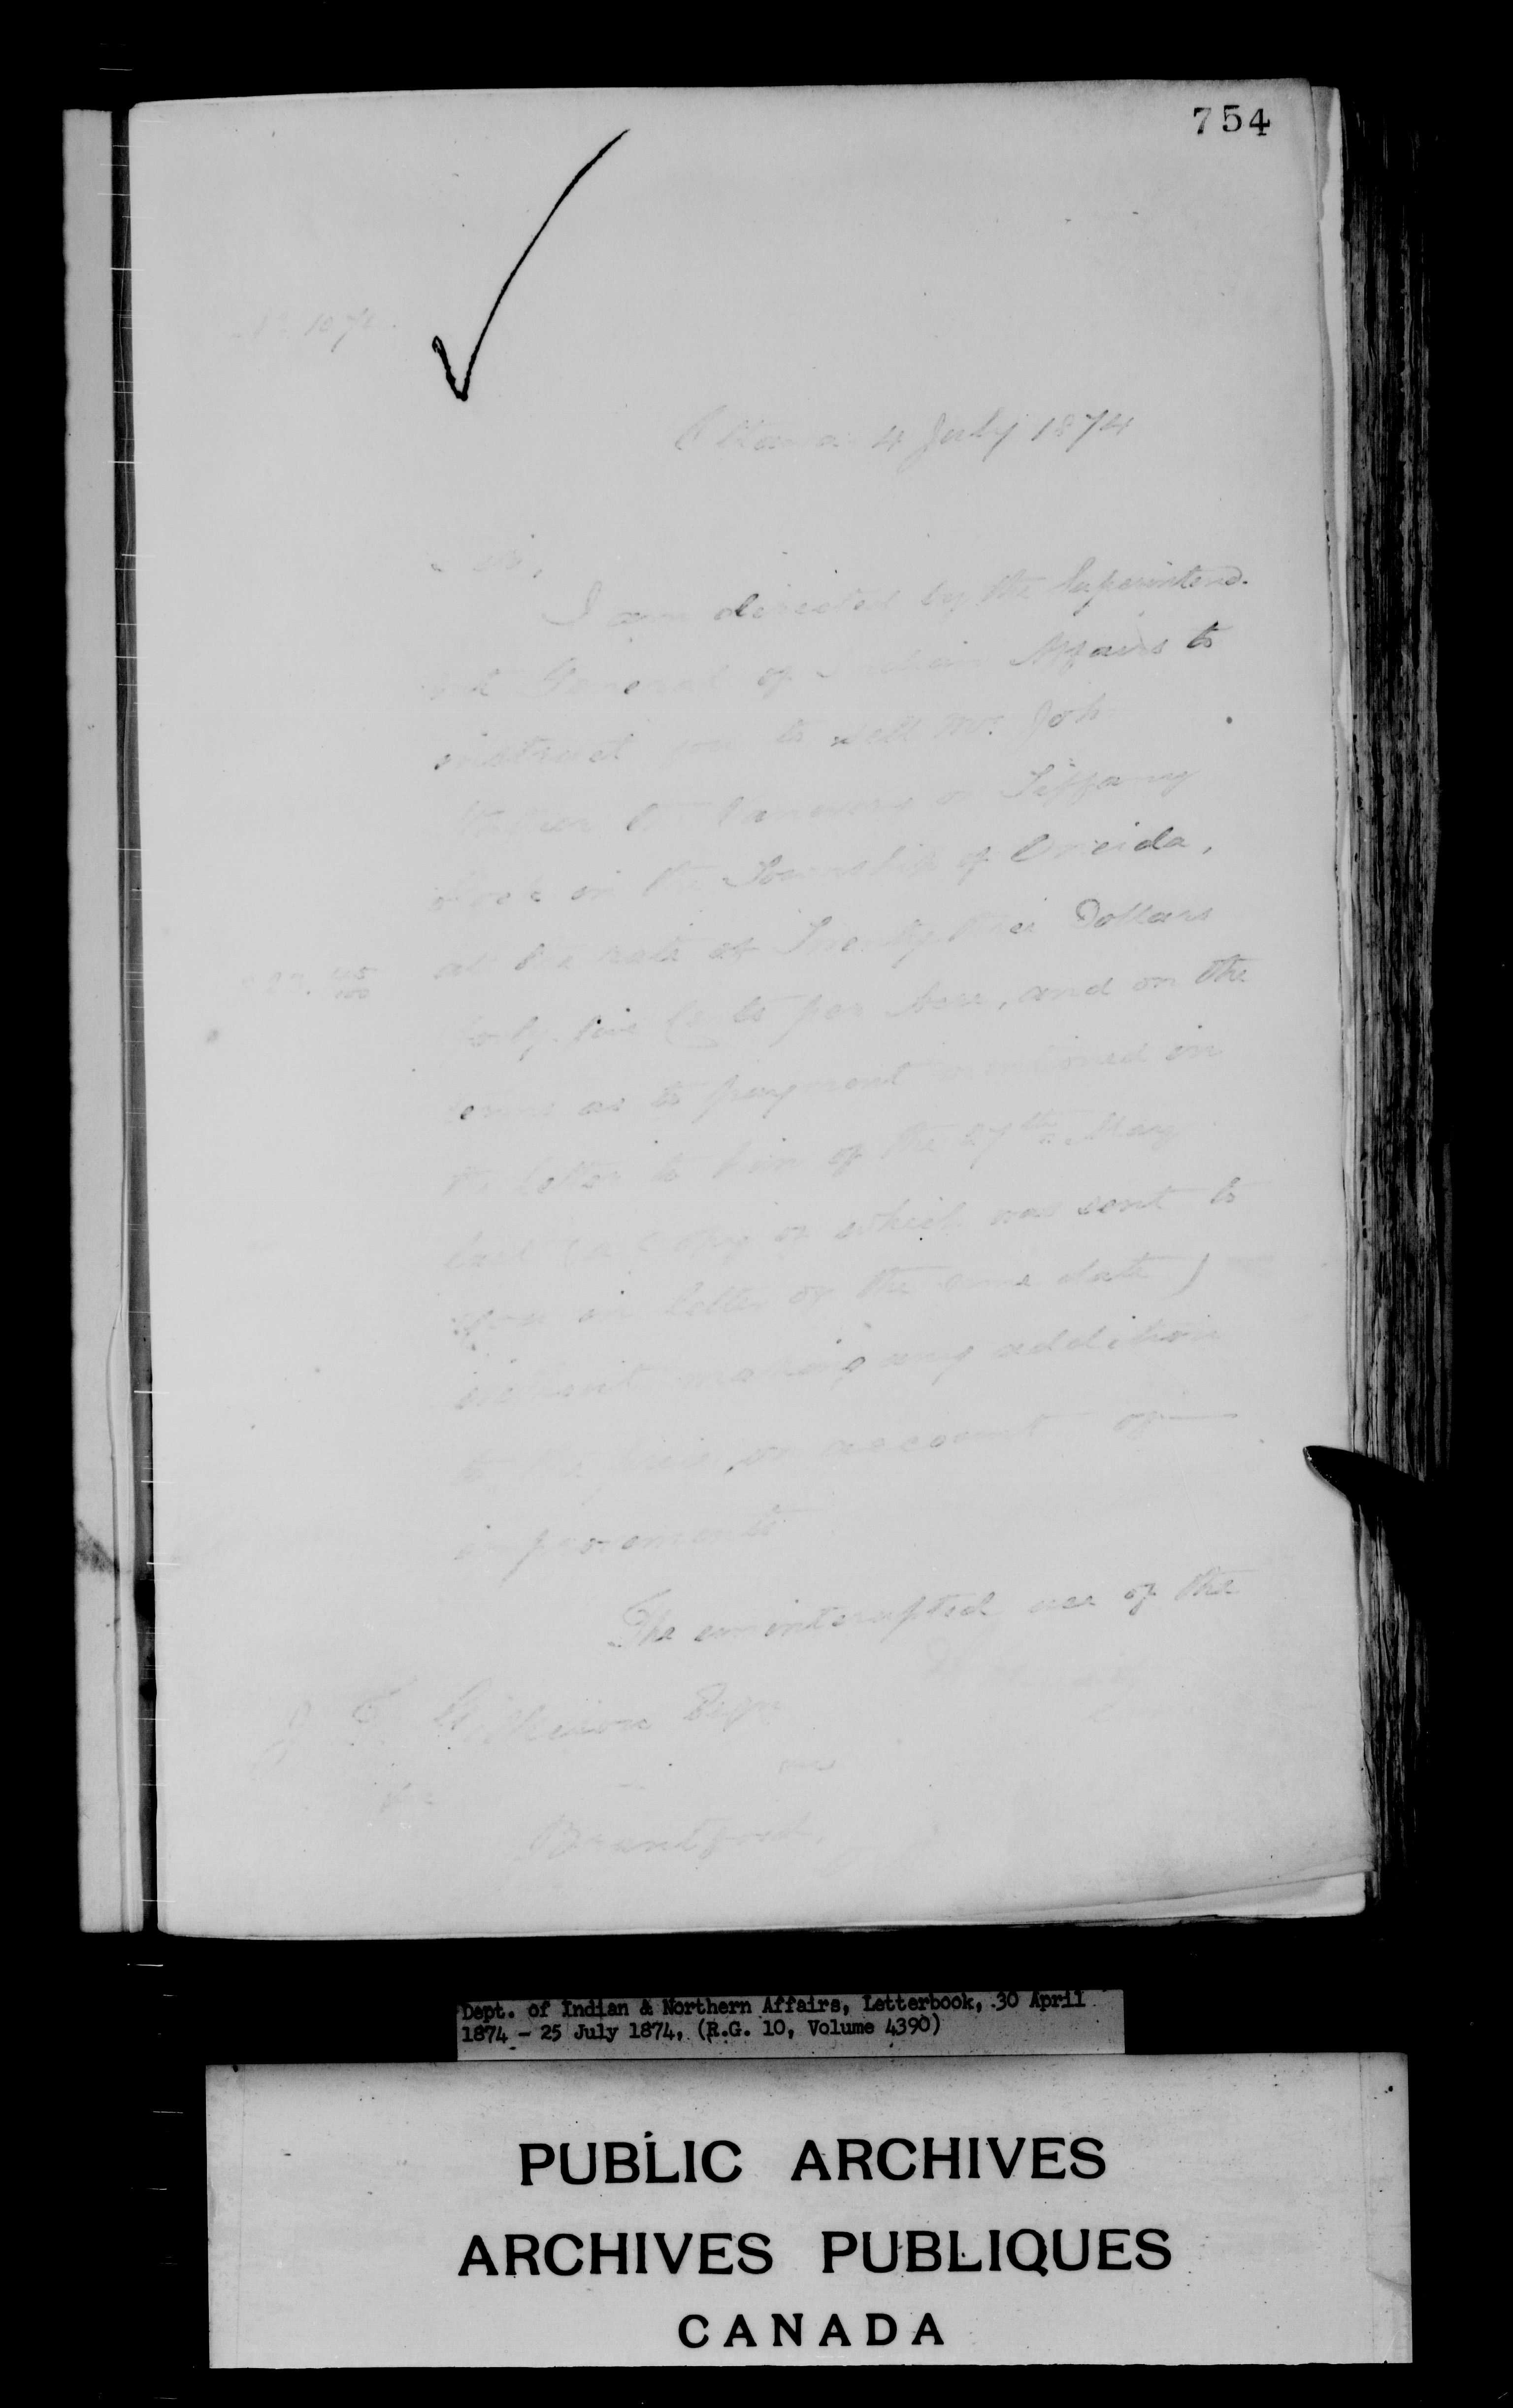 754
Ottawa 4 July 1874
Sir,
I am directed by the Superintend-
ent General of Indian Affairs to
instruct you to sell Mr. John
or Tiffany
Block in the Township of Oneida,
at the rate of Twenty three Dollars
23. 45/100
forty five Cents per Acre, and on the
terms as to payment mentioned in
the letter to him of the 27th May
last (a copy of which was sent to
you in letter of the same date)
without making any addition
to the price, on account of
improvements
The uninterrupted use of the
J. T. Gilkison Esqr
Brantford,
Dept. of Indian & Northern Affairs, Letterbook, 30 April
1874 - 25 July 1874, (R.G. 10, Volume 4390)
PUBLIC ARCHIVES
ARCHIVES PUBLIQUES
CANADA